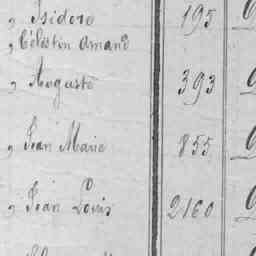 „ Isidore 195
„ Célestin Amand
„ Auguste 393
„ Jean Marie 855
„ Jean Louis 2160